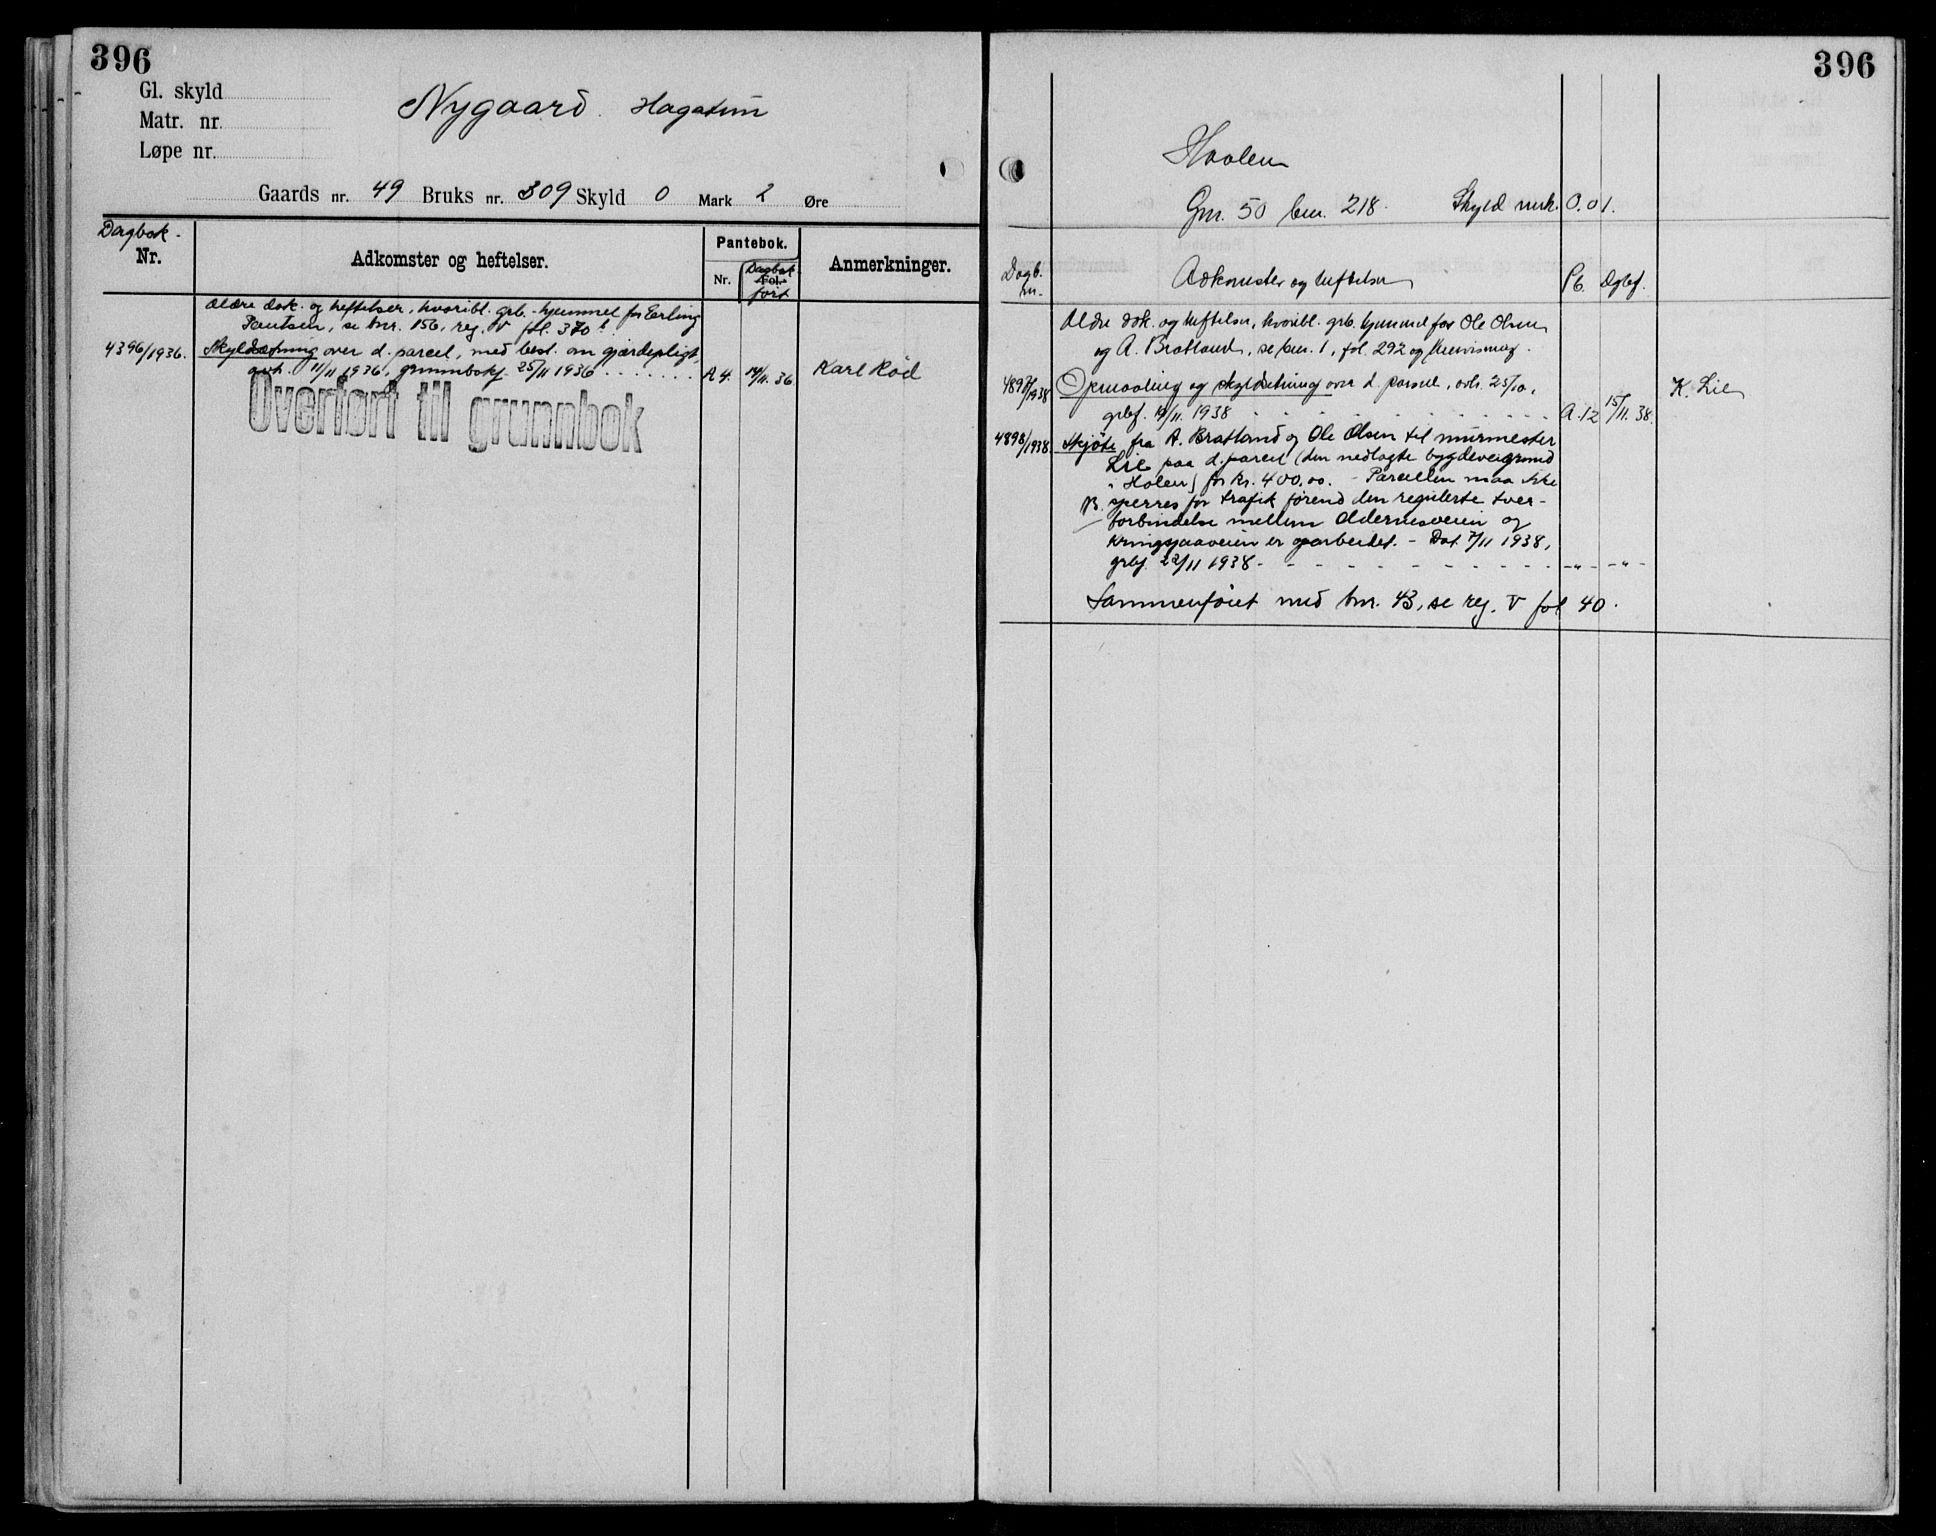 396
Gl. skyld
Matr. nr.
Løpe nr.
Nygaard. Hagatun
Gaards nr. 49 Bruks nr. 309 Skyld 0 Mark 2 Øre
Dagbok.
Nr.
Adkomster og heftelser.
Pantebok.
Nr. Fol. Dagbok ført
Anmerkninger.
Ældre dok. og heftelser, hvoribl. grb.-hjemmel for Erling
Paulsen, se bnr. 156, reg. V fol. 370 b.
4396/1936. Skyldsætning over d. parcel, med best. om gjærdepligt,
avh. 11/11 1936, grunnbokf. 25/11 1936 . . . . . . . A 4. 14/11. 36 Karl Rød
Overført til grunnbok
396
Haalen
Gnr. 50 bnr. 218. Skyld mrk. 0.01.
Dagb. nr.
Adkomster og heftelser
Pb. Dgbf.
Ældre dok. og heftelser, hvoribl. grb. hjemmel for Ole Olsen
og A. Bratland, se bnr. 1, fol. 292 og henvisning.
4897/1938 Opmaaling og skyldsetning over d. parcel, avh. 25/10,
grbf. 19/11. 1938 . . . . . . . . . . A. 12 15/11. 38. K. Lie
4898/1938 Skjøte fra A. Bratland og Ole Olsen til murmester
Lie paa d. parcel (den nedlagte bygdeveigrund
i Holen) for kr. 400,00. - Parcellen maa ikke
NB. sperres for trafik førend den regulerte tver-
forbindelse mellem Oldernesveien og
Kringsjaaveien er oparbeidet. - Dat. 7/11 1938,
grbf. 22/11 1938 - - - - - - - - - - -"- -"-
Sammenføiet med bnr. 43, se reg. V fol 40.